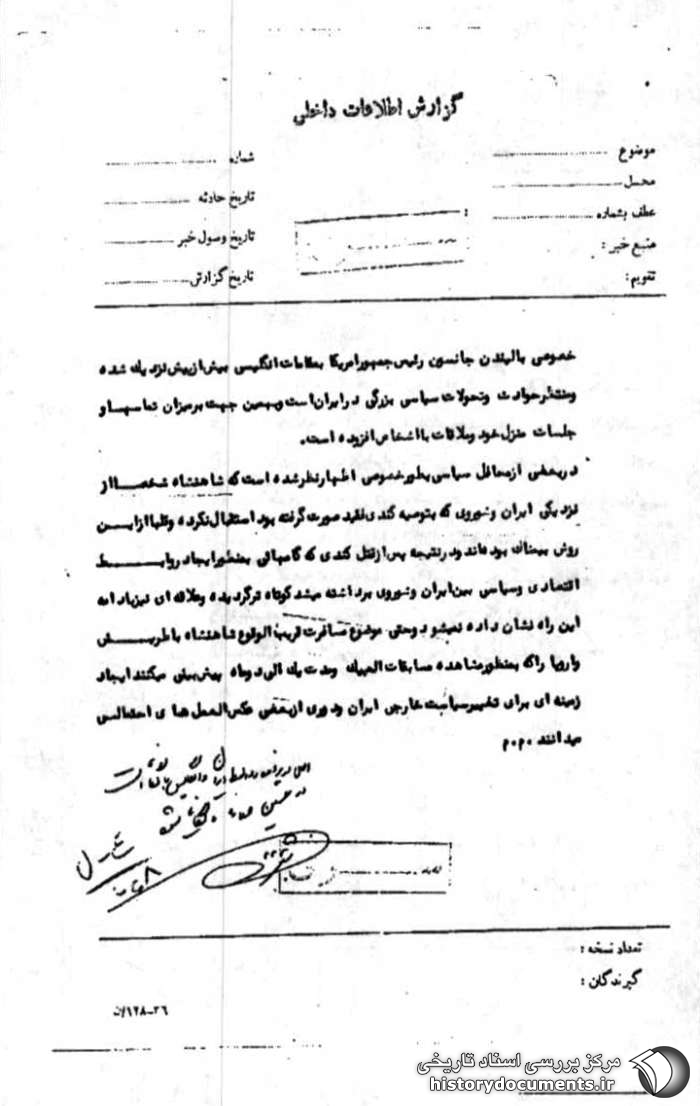 گزارش اطلاعات داخلی
موضوع
شماره
محـل
تاریخ حادثه
عطف بشماره
تاریخ وصول خبر
منبع خبر :
تاریخ گزارش
تقویم:
خصوصی با لیندن جانسون رئیس جمهور امریکا بمقامات انگلیسی بیش از بیش نزدیک شده
ومنتظر حوادث وتحولات سیاسی بزرگی در ایران است وبهمین جهت بر میزان تماسها و
جلسات منزل خود وملاقات با اشخاص افزوده است.
در بعضی از محافل سیاسی بطور خصوصی اظهار نظر شده است که شاهنشاه شخصا از
نزدیکی ایران وشوروی که بتوصیه کندی فقید صورت گرفته بود استقبال نکرده وقلبا از ایـن
روش بیمناک بوده‌اند ودر نتیجه پس از قتل کندی که گامهائی بمنظور ایجاد روابـط
اقتصادی وسیاسی بین ایران وشوروی برداشته میشد کوتاه تر گردیده وعلاقه ای نیز بادامه
این راه نشان داده نمیشود وحتی موضوع مسافرت قریب الوقوع شاهنشاه باطریـش
واروپا را که بمنظور مشاهده مسابقات المپیک ومدت یک الی دو ماه پیش بینی میکنند ایجاد
زمینه ای برای تغییر سیاست خارجی ایران ودوری از بعضی عکس العمل های احتمالـی
میدانند م۰م
اصل در پرونده روابط ایران و انگلیس
در
تعداد نسخه :
گیرندگان :
مرکز بررسی اسناد تاریخی
historydocuments.ir